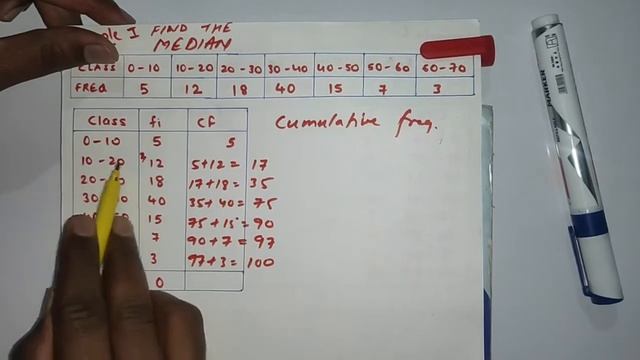 I FIND THE
MEDIAN
CLASS 0-10 10-20 20-30 30-40 40-50 50-60 60-70
FREQ 5 12 18 40 15 7 3
Class fi CF Cumulative freq.
0-10 5 5
10-20 12 5+12= 17
20- 18 17+18= 35
30- 40 35+40= 75
15 75+15= 90
7 90+7= 97
3 97+3= 100
0
MARKER